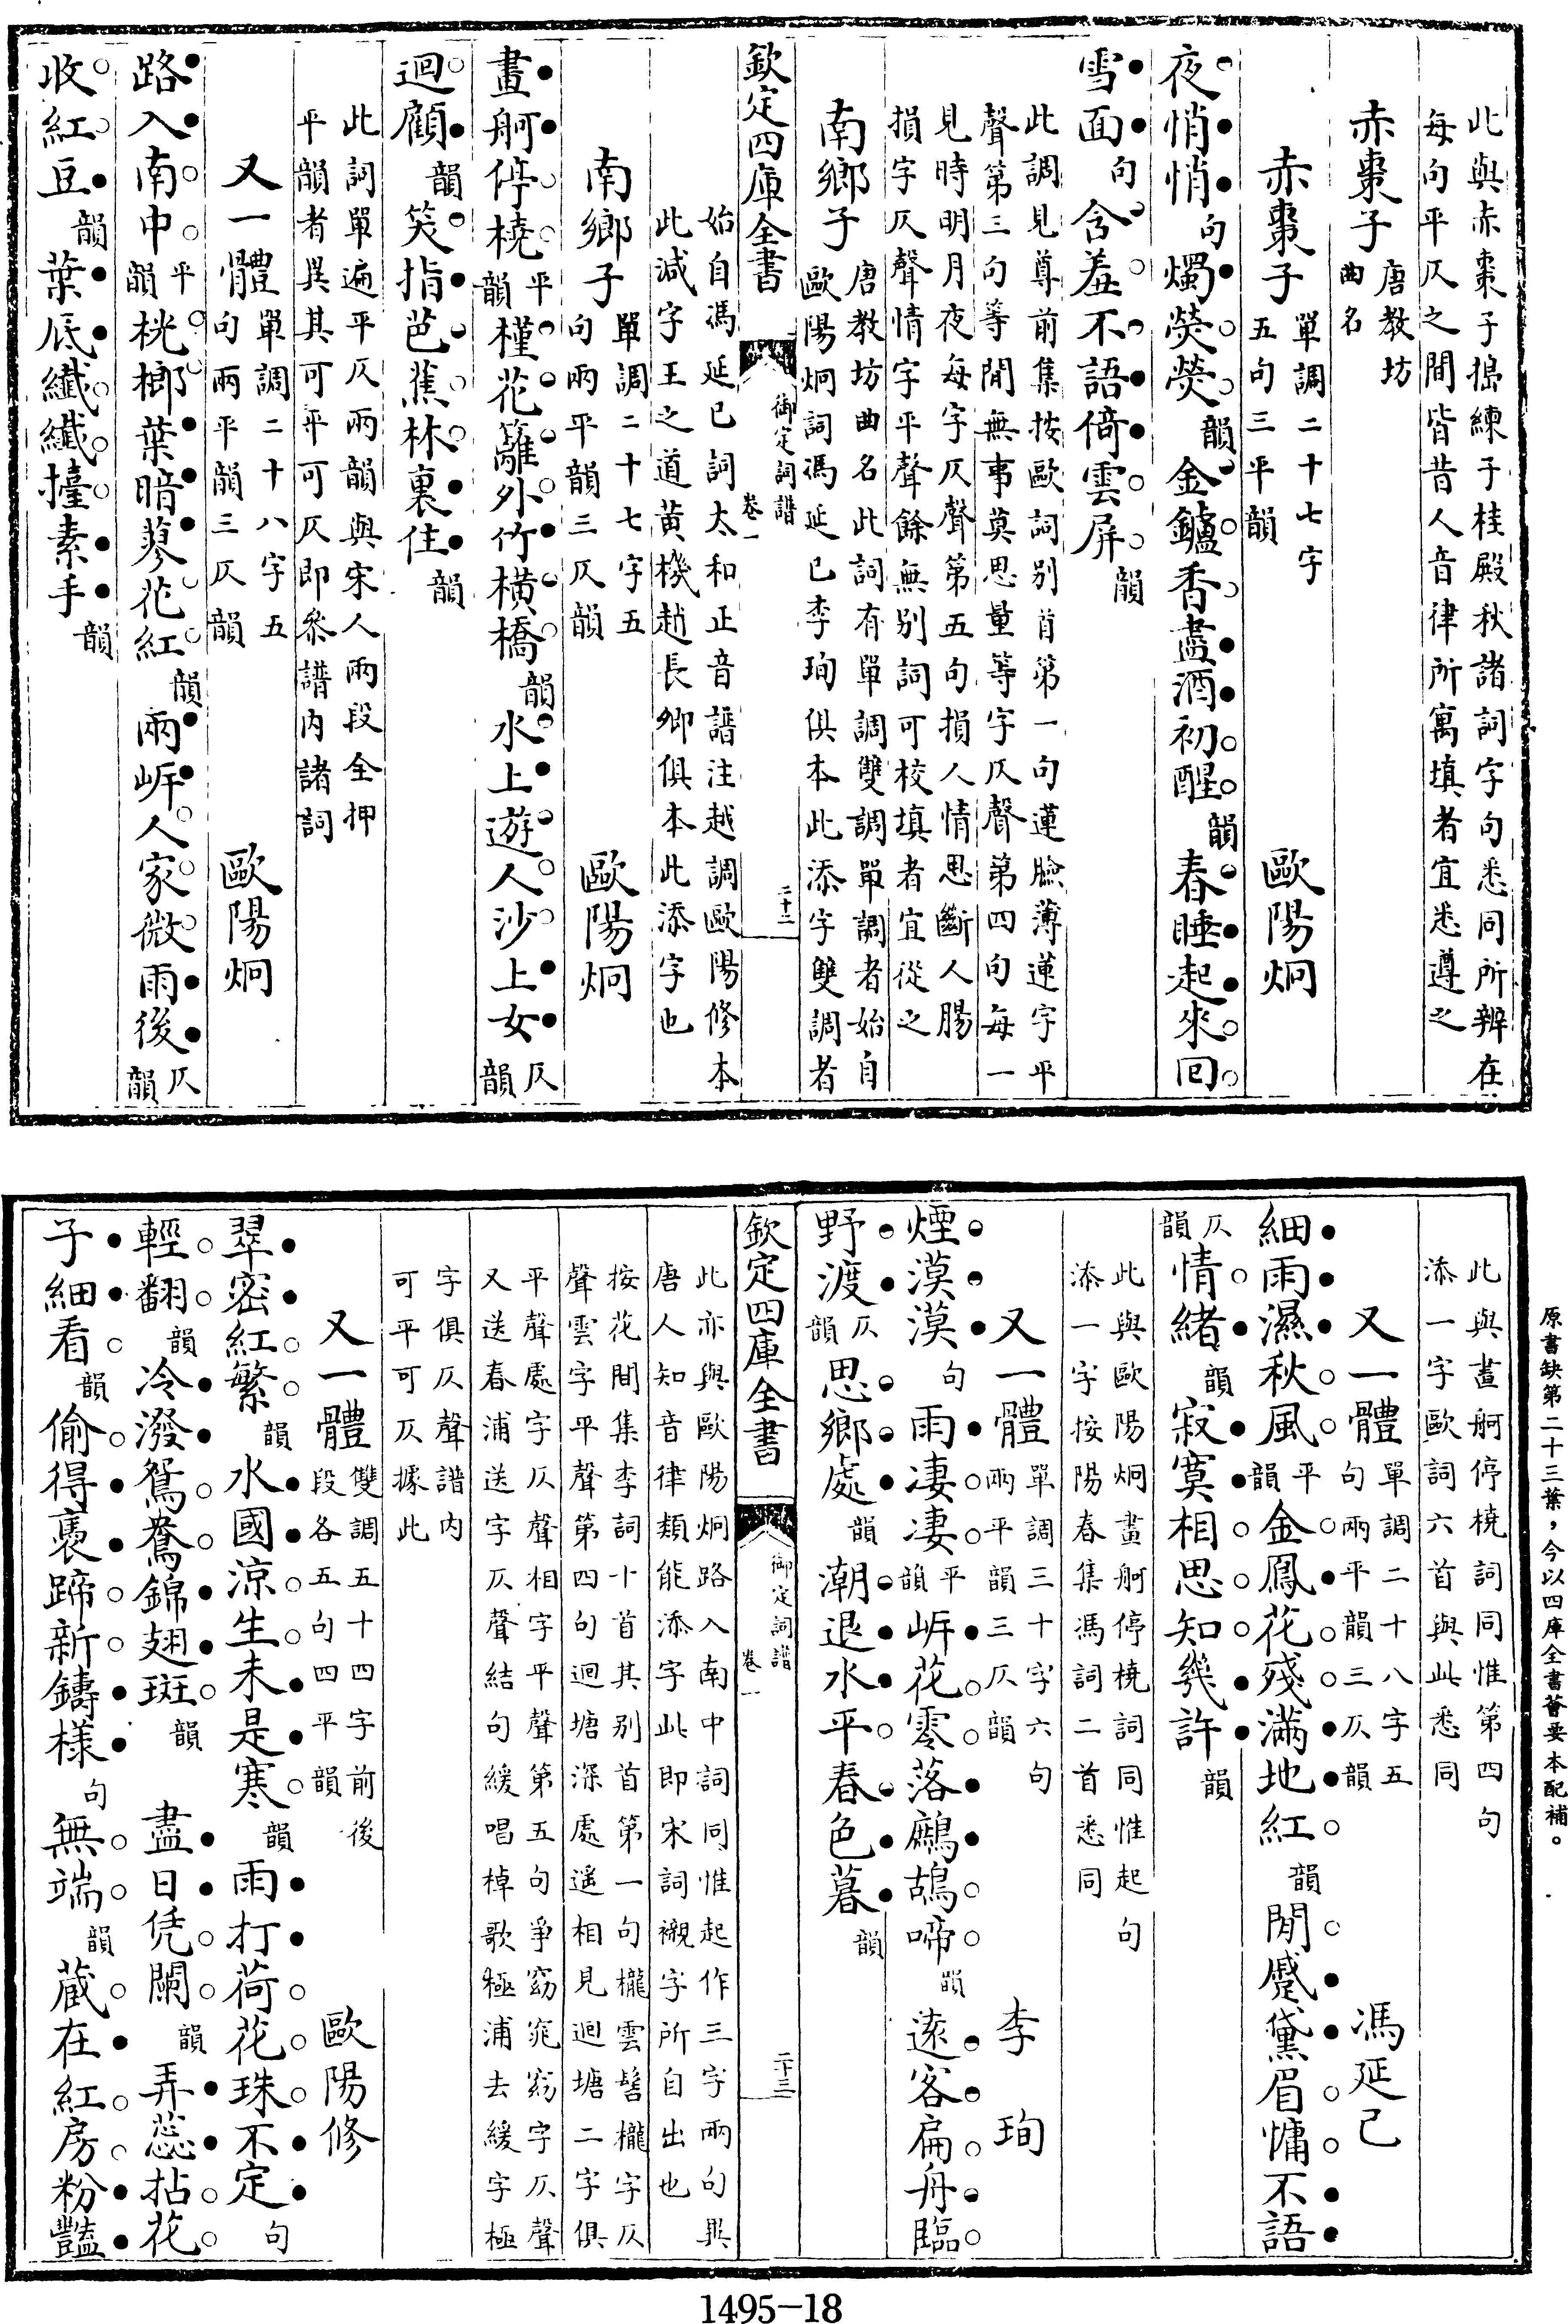 此與赤棗子搗練子桂殿秋諸詞字句悉同所辨在
每句平仄之間皆昔人音律所寓填者宜悉遵之
赤棗子 唐教坊
曲名
赤棗子 單調二十七字
五句三平韻 歐陽炯
夜悄悄句燭熒熒韻金鑪香盡酒初醒韻春睡起來回
雪面句含羞不語倚雲屏韻
此調見尊前集按歐詞別首第一句蓮臉薄蓮字平
聲第三句等閒無事莫思量等字仄聲第四句每一
見時明月夜每字仄聲第五句損人情思斷人腸
損字仄聲情字平聲餘無別詞可校填者宜從之
南鄉子 唐教坊曲名此詞有單調雙調單調者始自
歐陽炯詞馮延巳李珣俱本此添字雙調者
欽定四庫全書 御定詞譜 卷一 二十二
始自馮延巳詞太和正音譜注越調歐陽修本
此減字王之道黃機趙長卿俱本此添字也
南鄉子 單調二十七字五
句兩平韻三仄韻 歐陽炯
畫舸停橈平韻槿花籬外竹橫橋韻水上遊人沙上女仄韻
迴顧韻笑指芭蕉林裏住韻
此詞單遍平仄兩韻與宋人兩段全押
平韻者異其可平可仄即叅譜内諸詞
又一體 單調二十八字五
句兩平韻三仄韻 歐陽炯
路入南中平韻桄榔葉暗蓼花紅韻兩岍人家微雨後仄韻
收紅豆韻葉底纎纎擡素手韻
此與畫舸停橈詞同惟第四句
添一字歐詞六首與此悉同
又一體 單調二十八字五
句兩平韻三仄韻 馮延己
細雨濕秋風平韻金鳳花殘滿地紅韻閒蹙黛眉慵不語
仄韻情緒韻寂寞相思知幾許韻
此與歐陽炯畫舸停橈詞同惟起句
添一字按陽春集馮詞二首悉同
又一體 單調三十字六句
兩平韻三仄韻 李珣
煙漠漠句雨淒淒平韻岍花零落鷓鴣啼韻遠客扁舟臨
野渡仄韻思鄉處韻潮退水平春色暮韻
欽定四庫全書 御定詞譜 卷一 二十三
此亦與歐陽炯路入南中詞同惟起作三字兩句異
唐人知音律類能添字此即宋詞襯字所自出也
按花間集李詞十首其別首第一句櫳雲髻櫳字仄
聲雲字平聲第四句迴塘深處遥相見迴塘二字俱
平聲處字仄聲相字平聲第五句爭窈窕窈字仄聲
又送春浦送字仄聲結句緩唱棹歌極浦去緩字極
字俱仄聲譜内
可平可仄據此
又一體 雙調五十四字前後
段各五句四平韻 歐陽修
翠密紅繁韻水國涼生未是寒韻雨打荷花珠不定句
輕翻韻冷潑鴛鴦錦翅斑韻 盡日凭闌韻弄蕊拈花
子細看韻偷得裹蹄新鑄樣句無端韻藏在紅房粉豔
原書缺第二十三葉，今以四庫全書薈要本配補。
1495-18